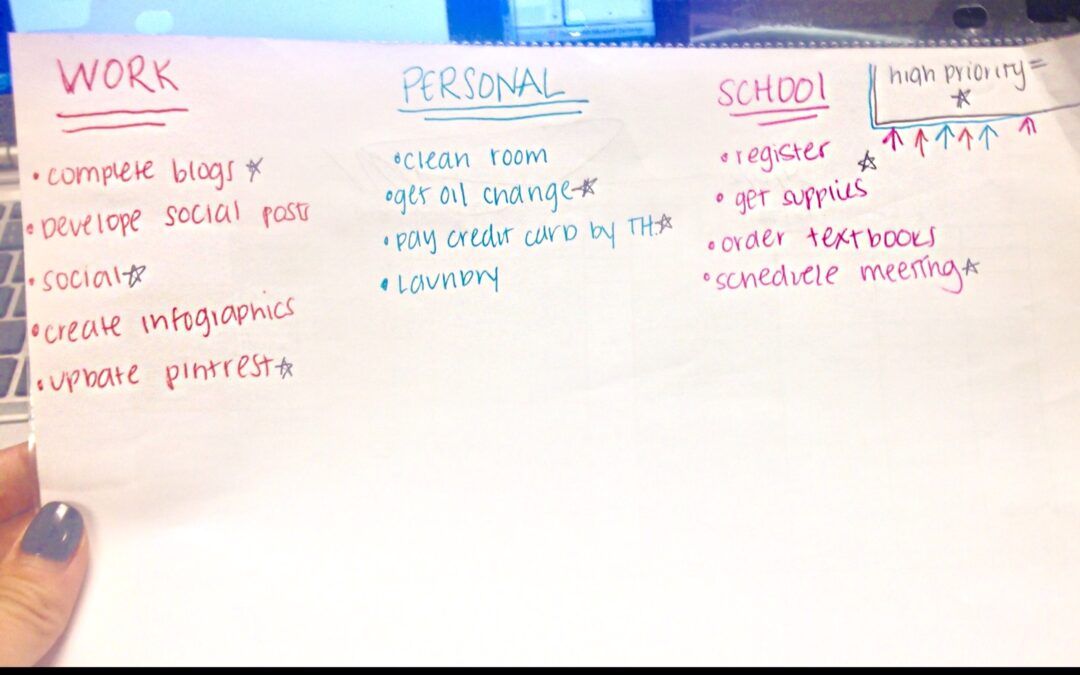 WORK
• complete blogs ☆
• Develope social posts
• social ☆
• create infographics
• update pintrest ☆
PERSONAL
• clean room
• get oil change ☆
• pay credit card by TH. ☆
• laundry
SCHOOL
• register
• get supplies ☆
• order textbooks
• schedule meeting ☆
high priority =
☆